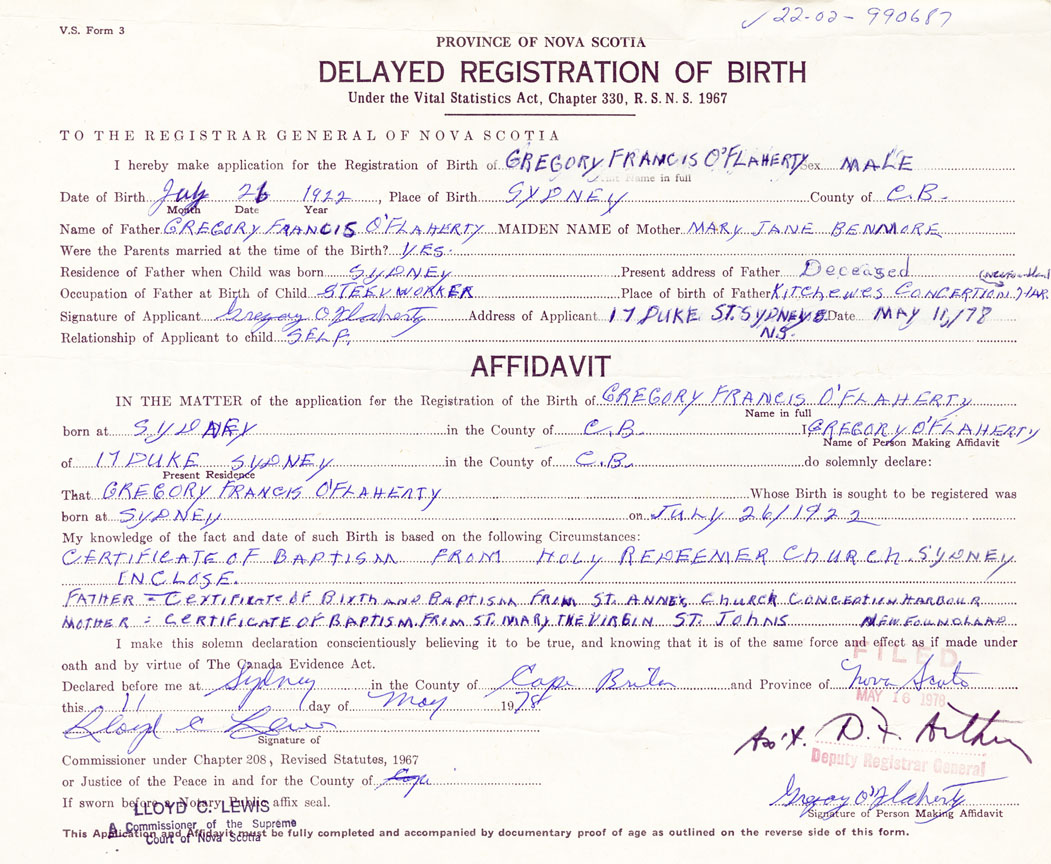 V.S. Form 3
22-02-990687
PROVINCE OF NOVA SCOTIA
DELAYED REGISTRATION OF BIRTH
Under the Vital Statistics Act, Chapter 330, R. S. N. S. 1967
TO THE REGISTRAR GENERAL OF NOVA SCOTIA
I hereby make application for the Registration of Birth of GREGORY FRANCIS O'FLAHERTY Sex MALE
Name in full
Date of Birth July 26 1922, Place of Birth SYDNEY County of C.B.
Month Date Year
Name of Father GREGORY FRANCIS O'FLAHERTY MAIDEN NAME of Mother MARY JANE BENMORE
Were the Parents married at the time of the Birth? YES.
Residence of Father when Child was born SYDNEY Present address of Father Deceased
Occupation of Father at Birth of Child STEELWORKER Place of birth of Father Kitchewes CONCERTION HAR.
Signature of Applicant Gregory O'Flaherty Address of Applicant 17 DUKE ST. SYDNEY Date MAY 11/78
N.S.
Relationship of Applicant to child SELF.
AFFIDAVIT
IN THE MATTER of the application for the Registration of the Birth of GREGORY FRANCIS O'FLAHERTY
Name in full
born at SYDNEY in the County of C.B. I GREGORY O'FLAHERTY
Name of Person Making Affidavit
of 17 DUKE SYDNEY in the County of C.B. do solemnly declare:
Present Residence
That GREGORY FRANCIS O'FLAHERTY Whose Birth is sought to be registered was
born at SYDNEY on JULY 26/1922
My knowledge of the fact and date of such Birth is based on the following Circumstances:
CERTIFICATE OF BAPTISM FROM HOLY REDEEMER CHURCH SYDNEY
INCLOSE.
FATHER = CERTIFICATE OF BIRTH AND BAPTISM FROM ST. ANNES CHURCH CONCEPTION HARBOUR
MOTHER : CERTIFICATE OF BAPTISM, FROM ST. MARY THE VIRGIN ST. JOHNS NEWFOUNDLAD
I make this solemn declaration conscientiously believing it to be true, and knowing that it is of the same force and effect as if made under
oath and by virtue of The Canada Evidence Act.
FILED
Declared before me at Sydney in the County of Cape Breton and Province of Nova Scotia
MAY 16 1978
this 11 day of May 1978
Lloyd C Lewis
Signature of
Commissioner under Chapter 208, Revised Statutes, 1967
Deputy Registrar General
or Justice of the Peace in and for the County of Cape
Gregory O'Flaherty
If sworn before a Notary Public affix seal.
Signature of Person Making Affidavit
LLOYD C. LEWIS
A Commissioner of the Supreme
Court of Nova Scotia
This Application and Affidavit must be fully completed and accompanied by documentary proof of age as outlined on the reverse side of this form.